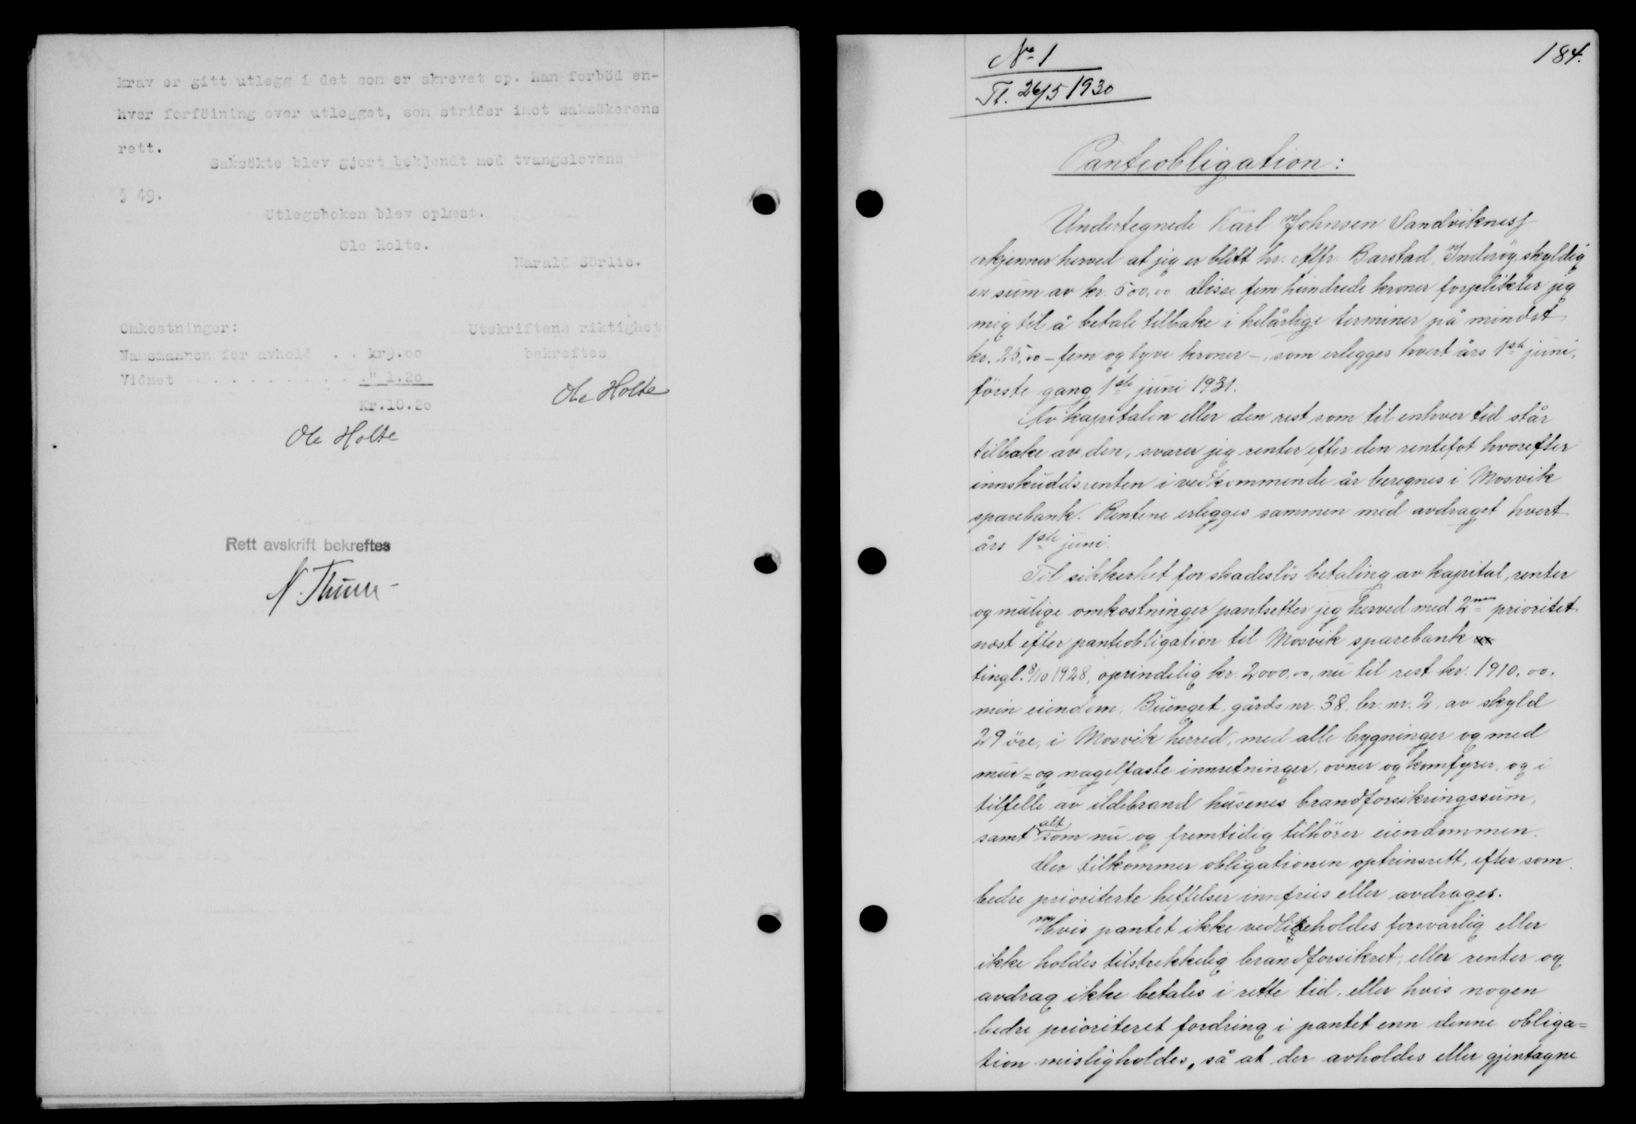 krav er gitt utlegg i det som er skrevet op. Han forböd en-
hver forföining over utlegget, som strider imot saksökerens
rett.
Saksökte blev gjort bekjendt med tvangslovens
§ 49.
Utlegsboken blev oplæst.
Ole Holte.
Harald Sörlie.
Omkostninger:
Utskriftens riktighet
Namsmannen for avhold . . kr9.00
bekreftes
Vidnet . . . . . . . . . ." 1.20
Kr.10.20
Ole Holte
Ole Holte
Rett avskrift bekreftes
N. Thuen
No 1
184.
Tl. 26/5 1930
Panteobligation:
Undertegnede Karl Johnsen Sandviknesj
erkjenner herved at jeg er blitt hr. Alfr. Barstad, Inderöy, skyldig
en sum av kr. 500,00 Disse fem hundrede kroner forplikter jeg
mig til å betale tilbake i helårlige terminer på mindst
kr. 25,00 - fem og tyve kroner -, som erlegges hvert års 1ste juni,
förste gang 1ste juni 1931.
Av kapitalen eller den rest som til enhver tid står
tilbake av den, svarer jeg renter efter den rentefot hvorefter
innskuddsrenten i vedkommende år beregnes i Mosvik
sparebank. Rentene erlegges sammen med avdraget hvert
års 1ste juni.
Til sikkerhet for skadeslös betaling av kapital, renter
og mulige omkostninger pantsetter jeg herved med 2nen prioritet
næst efter panteobligation til Mosvik sparebank
tingl. 8/10 1928, oprindelig kr. 2000,00, nu til rest kr. 1910,00,
min eiendom, Buenget, gårds nr. 38, br. nr. 2, av skyld
29 öre, i Mosvik herred, med alle bygninger og med
mur- og nagelfaste innretninger, ovner og komfyrer, og i
tilfelle av ildebrand husenes brandforsikringssum,
samt alt som nu og fremtidig tilhörer eiendommen.
Der tilkommer obligationen optrinsrett, efter som
bedre prioriterte heftelser innfries eller avdrages.
Hvis pantet ikke vedlikeholdes forsvarlig eller
ikke holdes tilstrekkelig brandforsikret, eller renter og
avdrag ikke betales i rette tid, eller hvis nogen
bedre prioritert fordring i pantet enn denne obliga-
tion misligholdes, så at der avholdes eller gjentagne